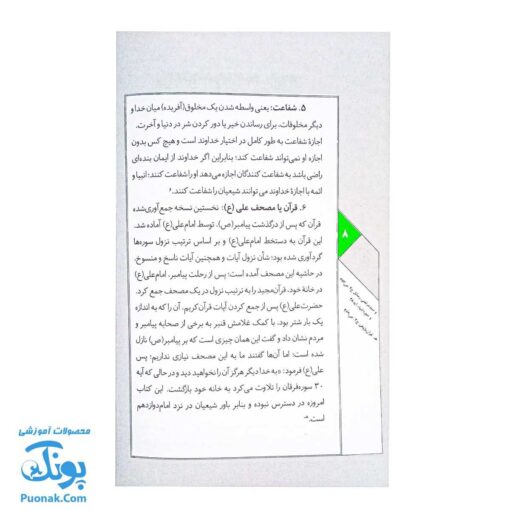 ۵. شفاعت: یعنی واسطه شدن یک مخلوق(آفریده) میان خدا و
دیگر مخلوقات، برای رساندن خیر یا دور کردن شر در دنیا و آخرت.
اجازهٔ شفاعت به طور کامل در اختیار خداوند است و هیچ کس بدون
اجازه او نمی‌تواند شفاعت کند؛ بنابراین اگر خداوند از ایمان بنده‌ای
راضی باشد به شفاعت کنندگان اجازه می‌دهد او را شفاعت کنند؛ انبیا و
ائمه با اجازهٔ خداوند می توانند شیعیان را شفاعت کنند.
۶. قرآن یا مصحف علی (ع): نخستین نسخه جمع‌آوری‌شده
قرآن که پس از درگذشت پیامبر(ص)، توسط امام‌علی(ع) آماده شد.
این قرآن به دستخط امام‌علی(ع) و بر اساس ترتیب نزول سوره‌ها
گردآوری شده بود؛ شأن نزول آیات و همچنین آیات ناسخ و منسوخ،
در حاشیه این مصحف آمده است؛ پس از رحلت پیامبر، امام‌علی(ع)
در خانهٔ خود، قرآن‌مجید را به ترتیب نزول در یک مصحف جمع کرد.
حضرت‌علی(ع) پس از جمع کردن آیات قرآن‌کریم، آن را که به اندازه
یک بار شتر بود، با کمک غلامش قنبر به برخی از صحابه پیامبر و
مردم نشان داد و گفت این همان چیزی است که بر پیامبر(ص) نازل
شده است؛ اما آن‌ها گفتند ما به این مصحف نیازی نداریم؛ پس
علی(ع) فرمود: «به خدا دیگر هرگز آن را نخواهید دید و در حالی که آیه
۳۰ سوره‌فرقان را تلاوت می‌کرد به خانه خود بازگشت. این کتاب
امروزه در دسترس نبوده و بنابر باور شیعیان در نزد امام‌دوازدهم
است.
۸
محصولات آموزشی
پونک
Puonak.Com